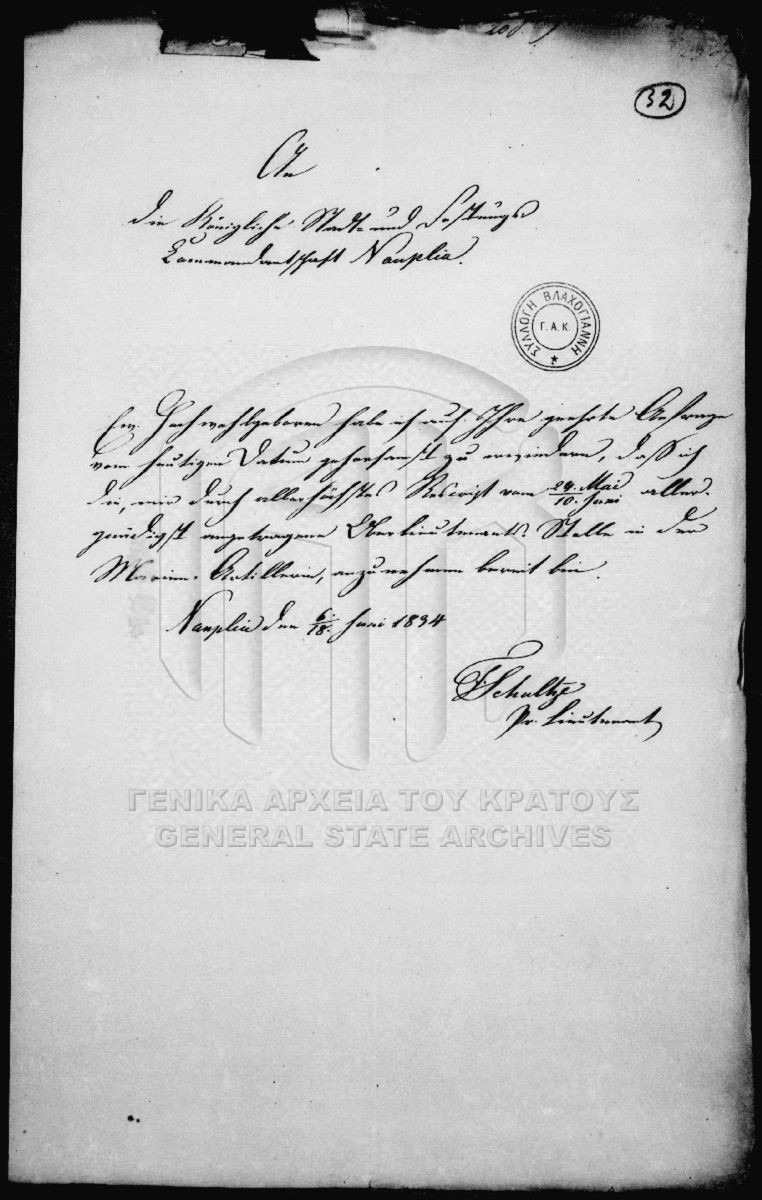 32
An
die Königliche Stadt- und Festungs
Commandantschaft Nauplia.
ΣΥΛΛΟΓΗ ΒΛΑΧΟΓΙΑΝΝΗ
Γ.Α.Κ.
Ew. Hochwohlgeboren habe ich auf Ihre geehrte Anfrage
vom heutigen Datum gehorsamst zu erwiedern, daß ich
die, mir durch allerhöchstes Rescript vom 29. Mai/10. Juni aller-
gnädigst angetragene Oberlieutenants-Stelle in der
Marine-Artillerie, anzunehmen bereit bin.
Nauplia den 6./18. Juni 1834
Schultze
Pr. Lieutenant
ΓΕΝΙΚΑ ΑΡΧΕΙΑ ΤΟΥ ΚΡΑΤΟΥΣ
GENERAL STATE ARCHIVES